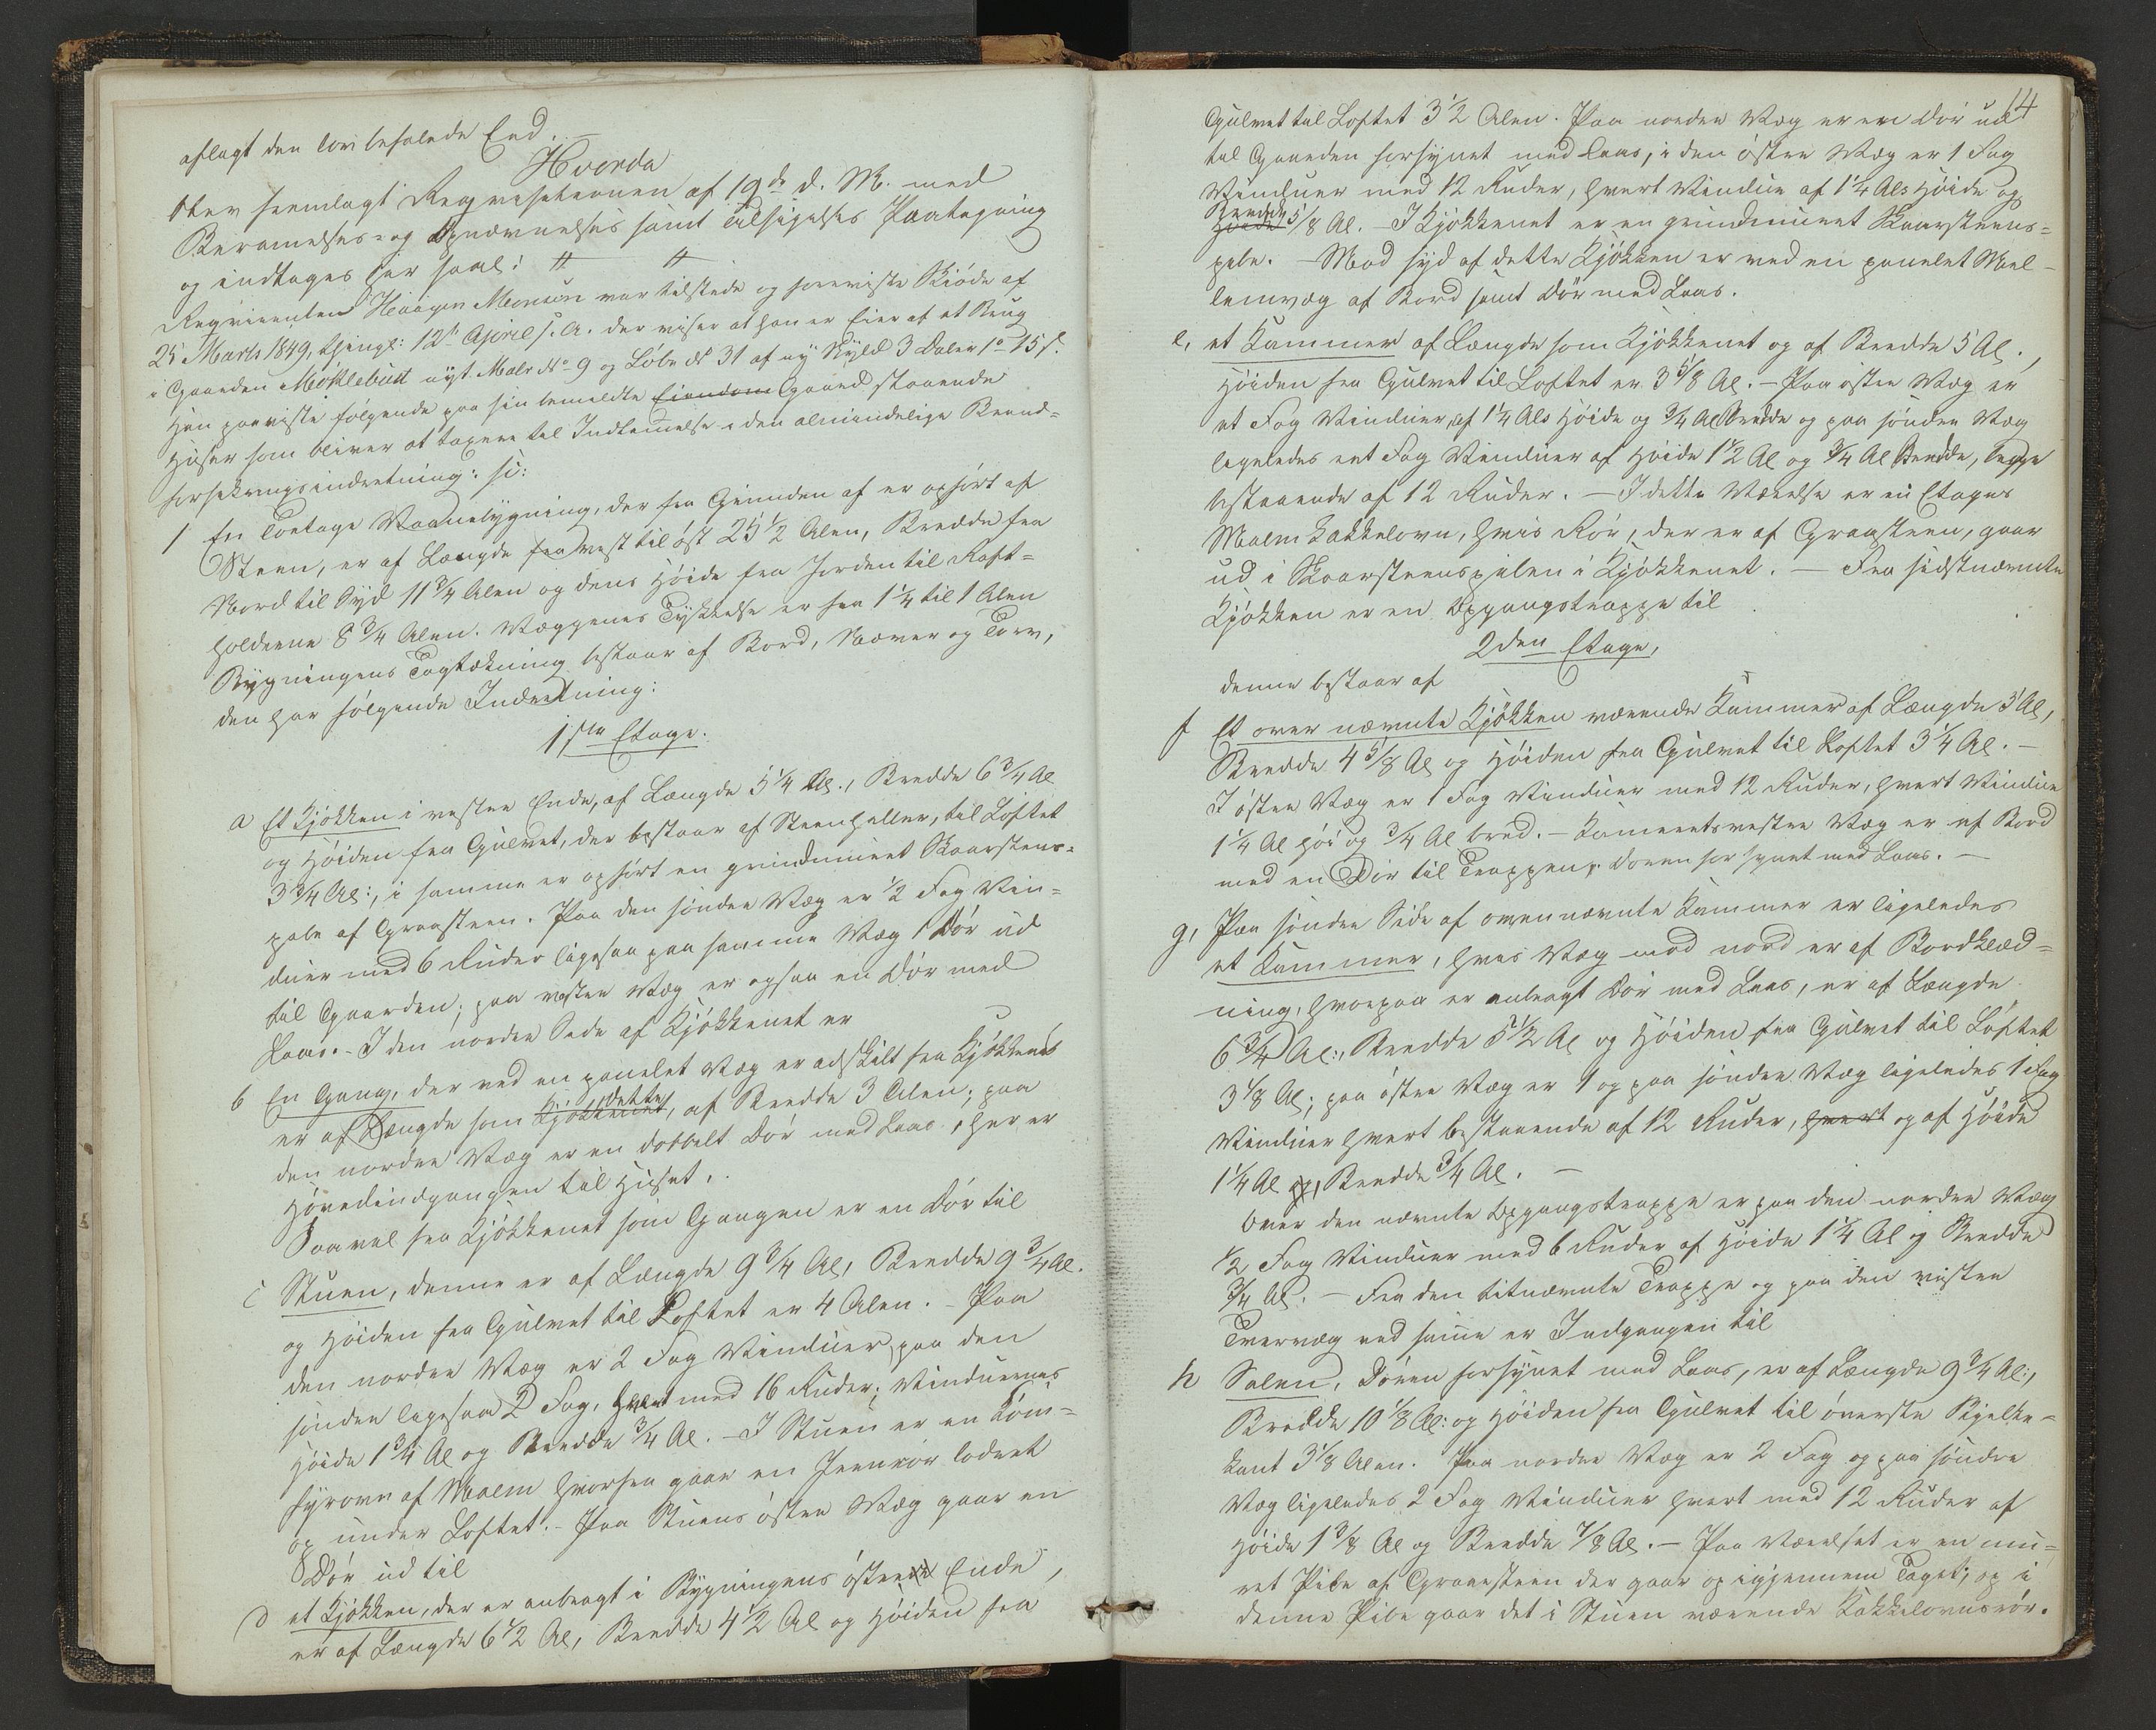 aflagt den lovbefalede Eed. —
Hvorda
blev fremlagt Reqvisitionen af 19de d. M. med
Berammelses- og Opnævnelses samt Tilsigelses Paategning
og indtages her saal: # #
Reqvirenten Haagen Monsen var tilstede og foreviste Skiöde af
25 Marts 1849, thingl: 12te April s. A. der viser at han er Eier af et Brug
i Gaarden Möklebust nyt Matr No 9 og Löbe No 31 af ny Skyld 3 Daler 1 o 15 s.
Han paaviste fölgende paa sin bemeldte Eiendom Gaard staaende
Huser som bliver at taxere til Indlemmelse i den almindelige Brand-
forsikringsindretning: s::
1 En Toetage Vaanebygning, der fra Grunden af er opfört af
Steen, er af Længde fra vest til öst 25 1/2 Alen, Bredde fra
Nord til Syd 11 3/4 Alen og dens Höide fra Jorden til Raft=
holderne 8 3/4 Alen. Væggenes Tykkelse er fra 1 1/4 til 1 Alen
Bygningens Tagtækning bestaar af Bord, Næver og Torv,
den har fölgende Indretning:
1ste Etage.
a Et Kjökken i vestre Ende, af Længde 5 1/4 Al., Bredde 6 3/4 Al
og Höiden fra Gulvet, der bestaar af Steenheller, til Loftet
3 3/4 Al:, i samme er opfört en grundmuret Skorstens-
pibe af Graasteen. Paa den söndre Væg er 1/2 Fag Vin-
duer med 6 Ruder ligesaa paa samme Væg 1 Dör ud
til Gaarden; paa vestre Væg er ogsaa en Dör med
Laas. - I den nordre Side af Kjökkenet er
b En Gang, der ved en panelet Væg er adskilt fra Kjökkenet
er af Længde som Kjökkenet dette, af Bredde 3 Alen; paa
den nordre Væg er en dobbelt Dör med Laas, her er
Hovedindgangen til Huset.
Saavel fra Kjökkenet som Gangen er en Dör til
c Stuen, denne er af Længde 9 3/4 Al, Bredde 9 3/4 Al.
og Höiden fra Gulvet til Loftet er 4 Alen. - Paa
den nordre Væg er 2 Fag Vinduer, paa den
söndre ligesaa 2 Fag, hvert med 16 Ruder; Vinduernes
Höide 1 3/4 Al og Bredde 3/4 Al. - I Stuen er en Kom-
fyrovn af Malm hvorfra gaar en Jernrör lodret
op under Loftet. - Paa Stuens östre Væg gaar en
Dör ud til
d et Kjökken, der er anbragt i Bygningens östre Ende,
er af Længde 6 1/2 Al, Bredde 4 1/2 Al og Höiden fra
14
Gulvet til Loftet 3 1/2 Alen. Paa nordre Væg er en Dör ud
til Gaarden forsynet med Laas, i den östre Væg er 1 Fag
Vinduer med 12 Ruder, hvert Vindue af 1 1/4 Als Höide og
Bredde
Höide 5/8 Al. - I Kjökkenet er en grundmuret Skaarsteens=
pibe. - Mod syd af dette Kjökken er ved en panelet Mel-
lemvæg af Bord samt Dör med Laas.
e, et Kammer af Længde som Kjökkenet og af Bredde 5 Al.,
Höiden fra Gulvet til Loftet er 3 5/8 Al. - Paa östre Væg er
et Fag Vinduer, af 1 1/4 Als Höide og 3/4 Al Bredde og paa söndre Væg
ligeledes eet Fag Vinduer af Höide 1 1/2 Al og 3/4 Al Bredde, begge
bestaaende af 12 Ruder. - I dette Værelse er en Etages
Malm Kakkelovn, hvis Rör, der er af Graasteen, gaar
ud i Skaarsteenspiben i Kjökkenet. - Fra sidstnævnte
Kjökken er en Opgangstrappe til
2den Etage,
denne bestaar af
f Et over nævnte Kjökken værende Kammer af Længde 5 Al,
Bredde 4 5/8 Al og Höiden fra Gulvet til Loftet 3 1/4 Al. -
I östre Væg er 1 Fag Vinduer med 12 Ruder, hvert Vindue
1 1/4 Al höi og 3/4 Al bred. - Kammerets vestre Væg er af Bord
med en Dör til Trappen, Doren forsynet med Laas. -
g, Paa söndre Side af ovennævnte Kammer er ligeledes
et Kammer, hvis Væg mod nord er af Bordklæd=
ning, hvorpaa er anbragt Dör med Laas, er af Længde
6 3/4 Al:, Bredde 5 1/2 Al og Höiden fra Gulvet til Loftet
3 1/8 Al; paa östre Væg er 1 og paa söndre Væg ligeledes 1 Fag
Vinduer hvert bestaaende af 12 Ruder, hvert og af Höide
1 1/4 Al og Bredde 3/4 Al. -
Over den nævnte Opgangstrappe er paa den nordre Væg
1/2 Fag Vinduer med 6 Ruder af Höide 1 1/4 Al og Bredde
3/4 Al. - Fra den titnævnte Trappe og paa den vestre
Tvervæg ved samme er Indgangen til
h Salen, Dören forsynet med Laas, er af Længde 9 3/4 Al:,
Bredde 10 1/8 Al: og Höiden fra Gulvet til överste Bjelke-
kant 3 1/8 Alen. Paa nordre Væg er 2 Fag og paa söndre
Væg ligeledes 2 Fag Vinduer hvert med 12 Ruder af
Höide 1 3/8 Al og Bredde 7/8 Al. - Paa Værelset er en mu=
ret Pibe af Graasteen der gaar op igjennem Taget; og i
denne Pibe gaar det i Stuen værende Kakkelovnsrör.